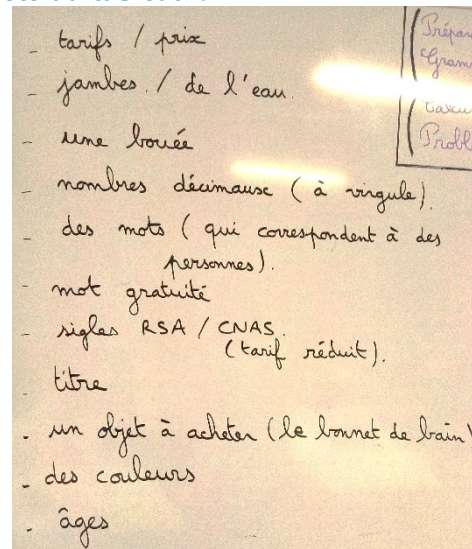 - tarifs / prix
- jambes / de l'eau
- une bouée
- nombres décimaux (à virgule).
- des mots (qui correspondent à des
personnes).
- mot gratuité
- sigles RSA / CNAS.
(tarif réduit).
- titre
- un objet à acheter (le bonnet de bain)
- des couleurs
- âges